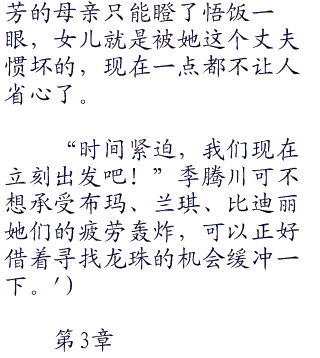 芳的母亲只能瞪了悟饭一
眼，女儿就是被她这个丈夫
惯坏的，现在一点都不让人
省心了。
“时间紧迫，我们现在
立刻出发吧！”季腾川可不
想承受布玛、兰琪、比迪丽
她们的疲劳轰炸，可以正好
借着寻找龙珠的机会缓冲一
下。')
第3章